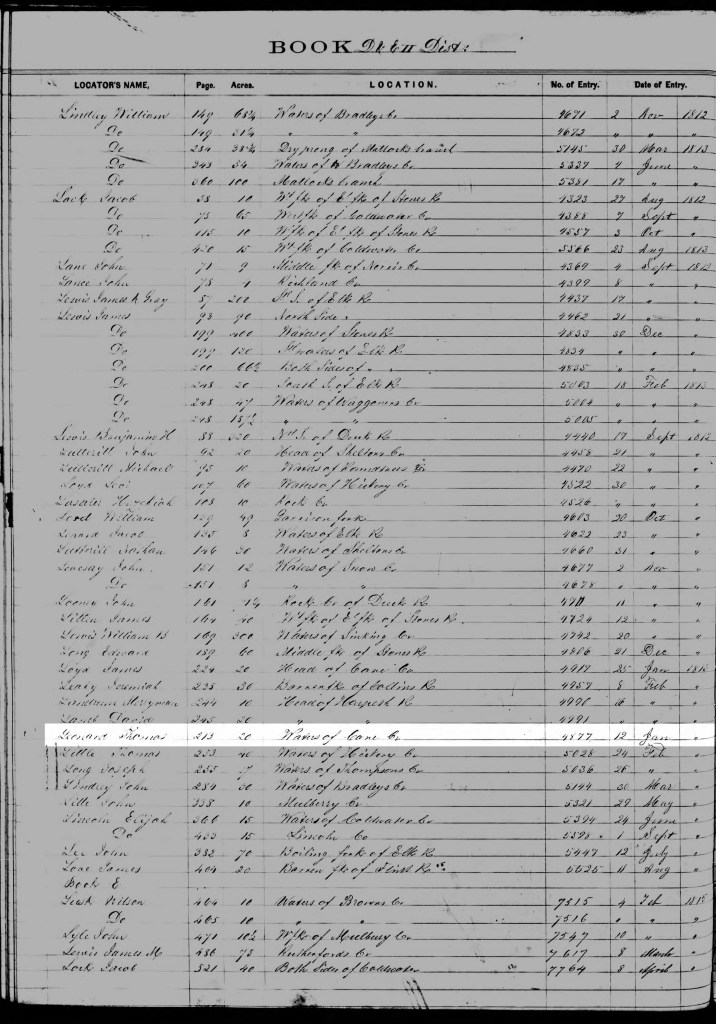 BOOK D & E II Dist:
LOCATOR'S NAME, Page. Acres. LOCATION. No. of Entry. Date of Entry.
Lindsey William 149 Waters of Bradleys Cr 4671 2 Nov 1812
Do 149 31¼ " " 4672 " " "
Do 284 38¾ Dry prong of Matlocks branch 5145 30 Mar 1813
Do 343 34 Waters of Bradleys Cr 5337 4 June "
Do 360 100 Matlocks branch 5381 17 " "
Lack Jacob 38 10 Wt fk of Et fk of Stones R 4323 27 Aug 1812
Do 73 65 West fk of Coldwater Cr 4388 7 Sept "
Do 115 10 W fk of Et fk of Stones R 4557 3 Oct "
Do 420 15 Wt fk of Coldwater Cr 5566 23 Aug 1813
Lane John 71 9 Middle fk of Norris Cr 4369 4 Sept 1812
Lance John 78 Richland Cr 4399 8 " "
Lewis James A Grey 57 200 of Elk R 4437 17 " "
Lewis James 93 90 North Side " 4462 21 " "
Do 199 200 Waters of Stones R 4833 30 Dec "
Do 199 120 waters of Elk R 4834 " " "
Do 200 66⅔ Both Sides of " " 4835 " " "
Do 248 20 South S. of Elk R 5003 18 Feb 1813
Do 248 47 Waters of Waggoners Cr 5004 " " "
Do 248 " " 5005 " " "
Lewis Benjamin H 88 No S. of Duck R 4440 17 Sept 1812
John 92 20 Head of Sheltons Cr 4458 21 " "
Michael 95 10 Waters of Cr 4470 22 " "
Loyd Levi 107 60 Waters of Hickory Cr 4522 30 " "
Lasater Hezekiah 108 10 Rock Cr 4526 " " "
Lord William 129 49 Garrison fork 4603 20 Oct "
Jacob 135 8 Waters of Elk R 4622 23 " "
Nathan 146 30 Waters of Sheltons Cr 4660 31 " "
Lindsay John 151 12 Waters of Snow Cr 4677 2 Nov "
Do 151 8 " " 4678 " " "
Looney John 161 Rock Cr of Duck R 11 " "
James 164 40 Wt fk of Et fk of Stones R. 4724 12 " "
Lewis William B 169 300 Waters of Sinking Cr 4742 20 " "
Long Edward 189 60 Middle fk of Stones R 4806 21 Dec "
Loyd James 224 20 Head of Cane Cr 4917 25 Jan 1813
Leary Jeremiah 235 30 Barren fk of Collins R 4957 8 Feb "
Merryman 244 10 Head of Harpeth R 4990 16 " "
Lamb David 245 30 " " 4991 " " "
Leonard Thomas 213 20 Waters of Cane Cr 4877 12 Jan "
Little Thomas 253 40 Waters of Hickory Cr 5028 24 Feb "
Long Joseph 255 7 Waters of Thompsons Cr 5036 26 " "
Lindsey John 284 30 Waters of Bradleys Cr 5144 30 Mar "
John 338 10 Mulberry Cr 5321 29 May "
Lincoln Elijah 366 15 Waters of Coldwater Cr 5394 24 June "
Do 433 15 Lincoln Co 5598 1 Sept "
Lee John 382 70 Boiling fork of Elk R 5447 12 July "
Love James 404 20 Barren fk of Flint R 5525 11 Aug "
Book E
Leak Wilson 464 10 Waters of Browns Cr 7515 4 Feb
Do 465 10 " " 7516 " " "
Lyle John 471 10½ W fk of Mulberry Cr 7547 10 " "
Lewis James M 486 73 Rutherfords Cr 7617 8 March "
Lock Jacob 521 40 Both Sides of Coldwater 7764 8 April "